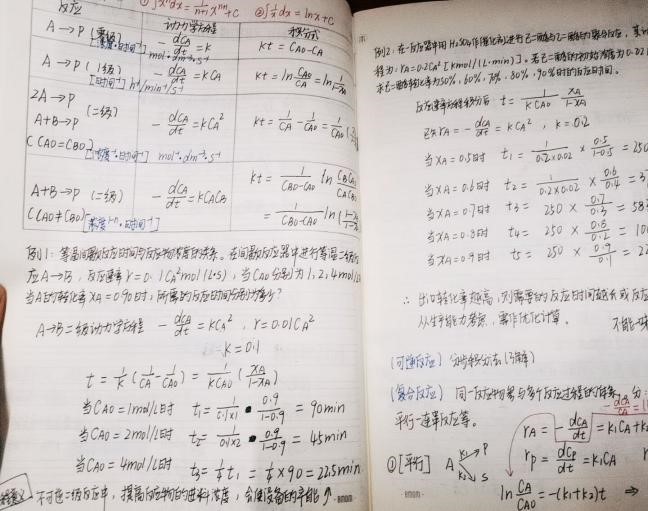 反应
① ∫xⁿdx = 1/(n+1) xⁿ⁺¹ + C ② ∫1/x dx = lnx + C
动力学方程 积分式
A→P (零级) -dCA/dt = k kt = CA0 - CA
[浓度·时间⁻¹] mol·dm⁻³·s⁻¹
A→P (1级) -dCA/dt = kCA kt = ln CA0/CA = ln 1/(1-xA)
[时间⁻¹] h⁻¹/min⁻¹/s⁻¹
2A→P (二级)
A+B→P -dCA/dt = kCA² kt = 1/CA - 1/CA0 = 1/CA0
(CA0=CB0)
A+B→P (二级) -dCA/dt = kCACB kt = 1/(CB0-CA0) ln
(CA0≠CB0) = 1/(CB0-CA0) ln
[浓度¹⁻ⁿ·时间⁻¹]
例1: 等温间歇反应时间与反应物浓度的关系。在间歇反应器中进行等温二级
应A→B, 反应速率 r=0.1CA² mol/(L·s), 当CA0分别为1, 2, 4mol/L
当A的转化率xA=0.90时, 所需的反应时间分别为多少?
A→B二级动力学方程 -dCA/dt = kCA², r=0.01CA²
k=0.1
t = 1/k (1/CA - 1/CA0) = 1/(kCA0) (xA/(1-xA))
当CA0=1mol/L时 t₁ = 1/(0.1×1) · 0.9/(1-0.9) = 90min
当CA0=2mol/L时 t₂ = 1/(0.1×2) · 0.9/(1-0.9) = 45min
当CA0=4mol/L时 t₃ = 1/4 t₁ = 1/4 × 90 = 22.5min
不可逆二级反应中, 提高反应物的进料浓度, 会使设备的产能↑.
例2: 在一反应器中用H₂SO₄作催化剂进行己二酸与己二醇的聚合反应, 其
程为: rA=0.2CA² [kmol/(L·min)]。若己二酸的初始浓度为0.02
求己二酸转化率为50%, 60%, 70%, 80%, 90%时的反应时间。
反应速率方程积分后: t = 1/(kCA0) xA/(1-xA)
已知 rA = -dCA/dt = kCA², k=0.2
当xA=0.5时 t₁ = 1/(0.2×0.02) × 0.5/(1-0.5) = 250
当xA=0.6时 t₂ = 1/(0.2×0.02) × 0.6/0.4 = 3
当xA=0.7时 t₃ = 250 × 0.7/0.3 = 58
当xA=0.8时 t₄ = 250 × 0.8/0.2 = 10
当xA=0.9时 t₅ = 250 × 0.9/0.1 = 22
∴ 出口转化率越高, 则需要的反应时间越长
从生产能力考虑, 需作优化计算。 不能
(可逆反应) 分步积分法
(复合反应) 同一反应物参与多个反应过程的
平行-连串反应等。
①[平行] A k₁→P k₂→S rA = -dCA/dt = k₁CA+k
rP = dCP/dt = k₁CA
ln CA/CA0 = -(k₁+k₂)t ⇒